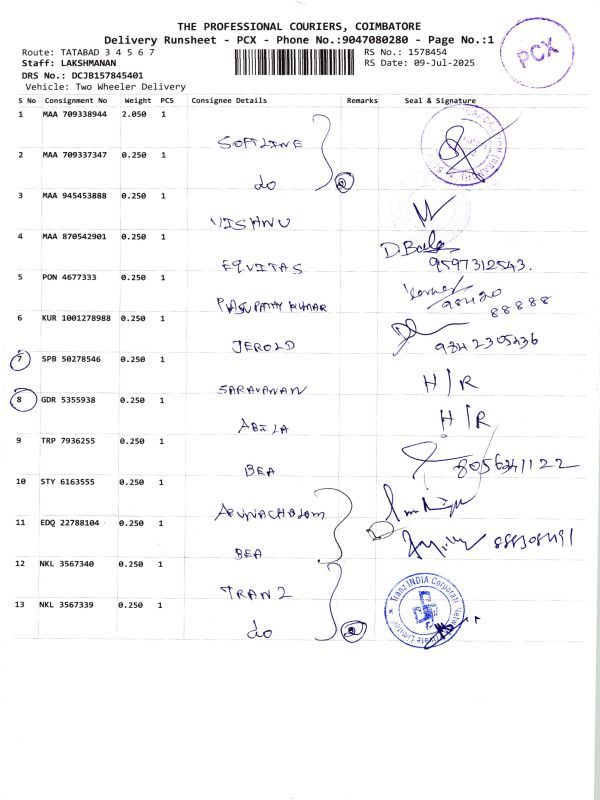 THE PROFESSIONAL COURIERS, COIMBATORE
Delivery Runsheet - PCX - Phone No.:9047080280 - Page No.:1
Route: TATABAD 3 4 5 6 7
RS No.: 1578454
Staff: LAKSHMANAN
RS Date: 09-Jul-2025
DRS No.: DCJB157845401
Vehicle: Two Wheeler Delivery
PCX
S No Consignment No Weight PCS Consignee Details Remarks Seal & Signature
1 MAA 709338944 2.050 1
SOFTLINE
2 MAA 709337347 0.250 1
do 2
3 MAA 945453888 0.250 1
VISHNU
4 MAA 870542901 0.250 1
EQVITAS D. Bala
9597312543.
5 PON 4677333 0.250 1
PASUPATHY KUMAR 98420
88888
6 KUR 1001278988 0.250 1
JEROLD 9342305436
7 SPB 50278546 0.250 1
SARAVANAN H/R
8 GDR 5355938 0.250 1
ABILA H/R
9 TRP 7936255 0.250 1
BEA 8056241122
10 STY 6163555 0.250 1
ARUNACHALAM
11 EDQ 22788104 0.250 1
BEA
12 NKL 3567340 0.250 1
TRANZ
13 NKL 3567339 0.250 1
do 2
Tranz INDIA Corporate Network Private Limited